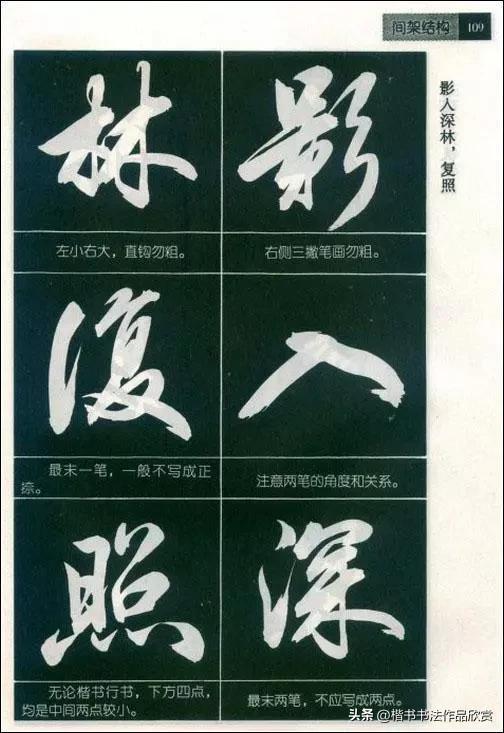 间架结构 109
影入深林，复照
影
右侧三撇笔画勿粗。
入
注意两笔的角度和关系。
深
最末两笔，不应写成两点。
林
左小右大，直钩勿粗。
復
最末一笔，一般不写成正
捺。
照
无论楷书行书，下方四点，
均是中间两点较小。
头条 @楷书书法作品欣赏